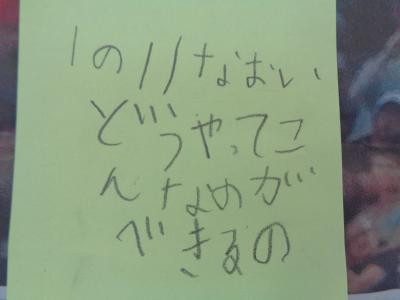 いのりなおい
どうやってこ
んなめが
できるの